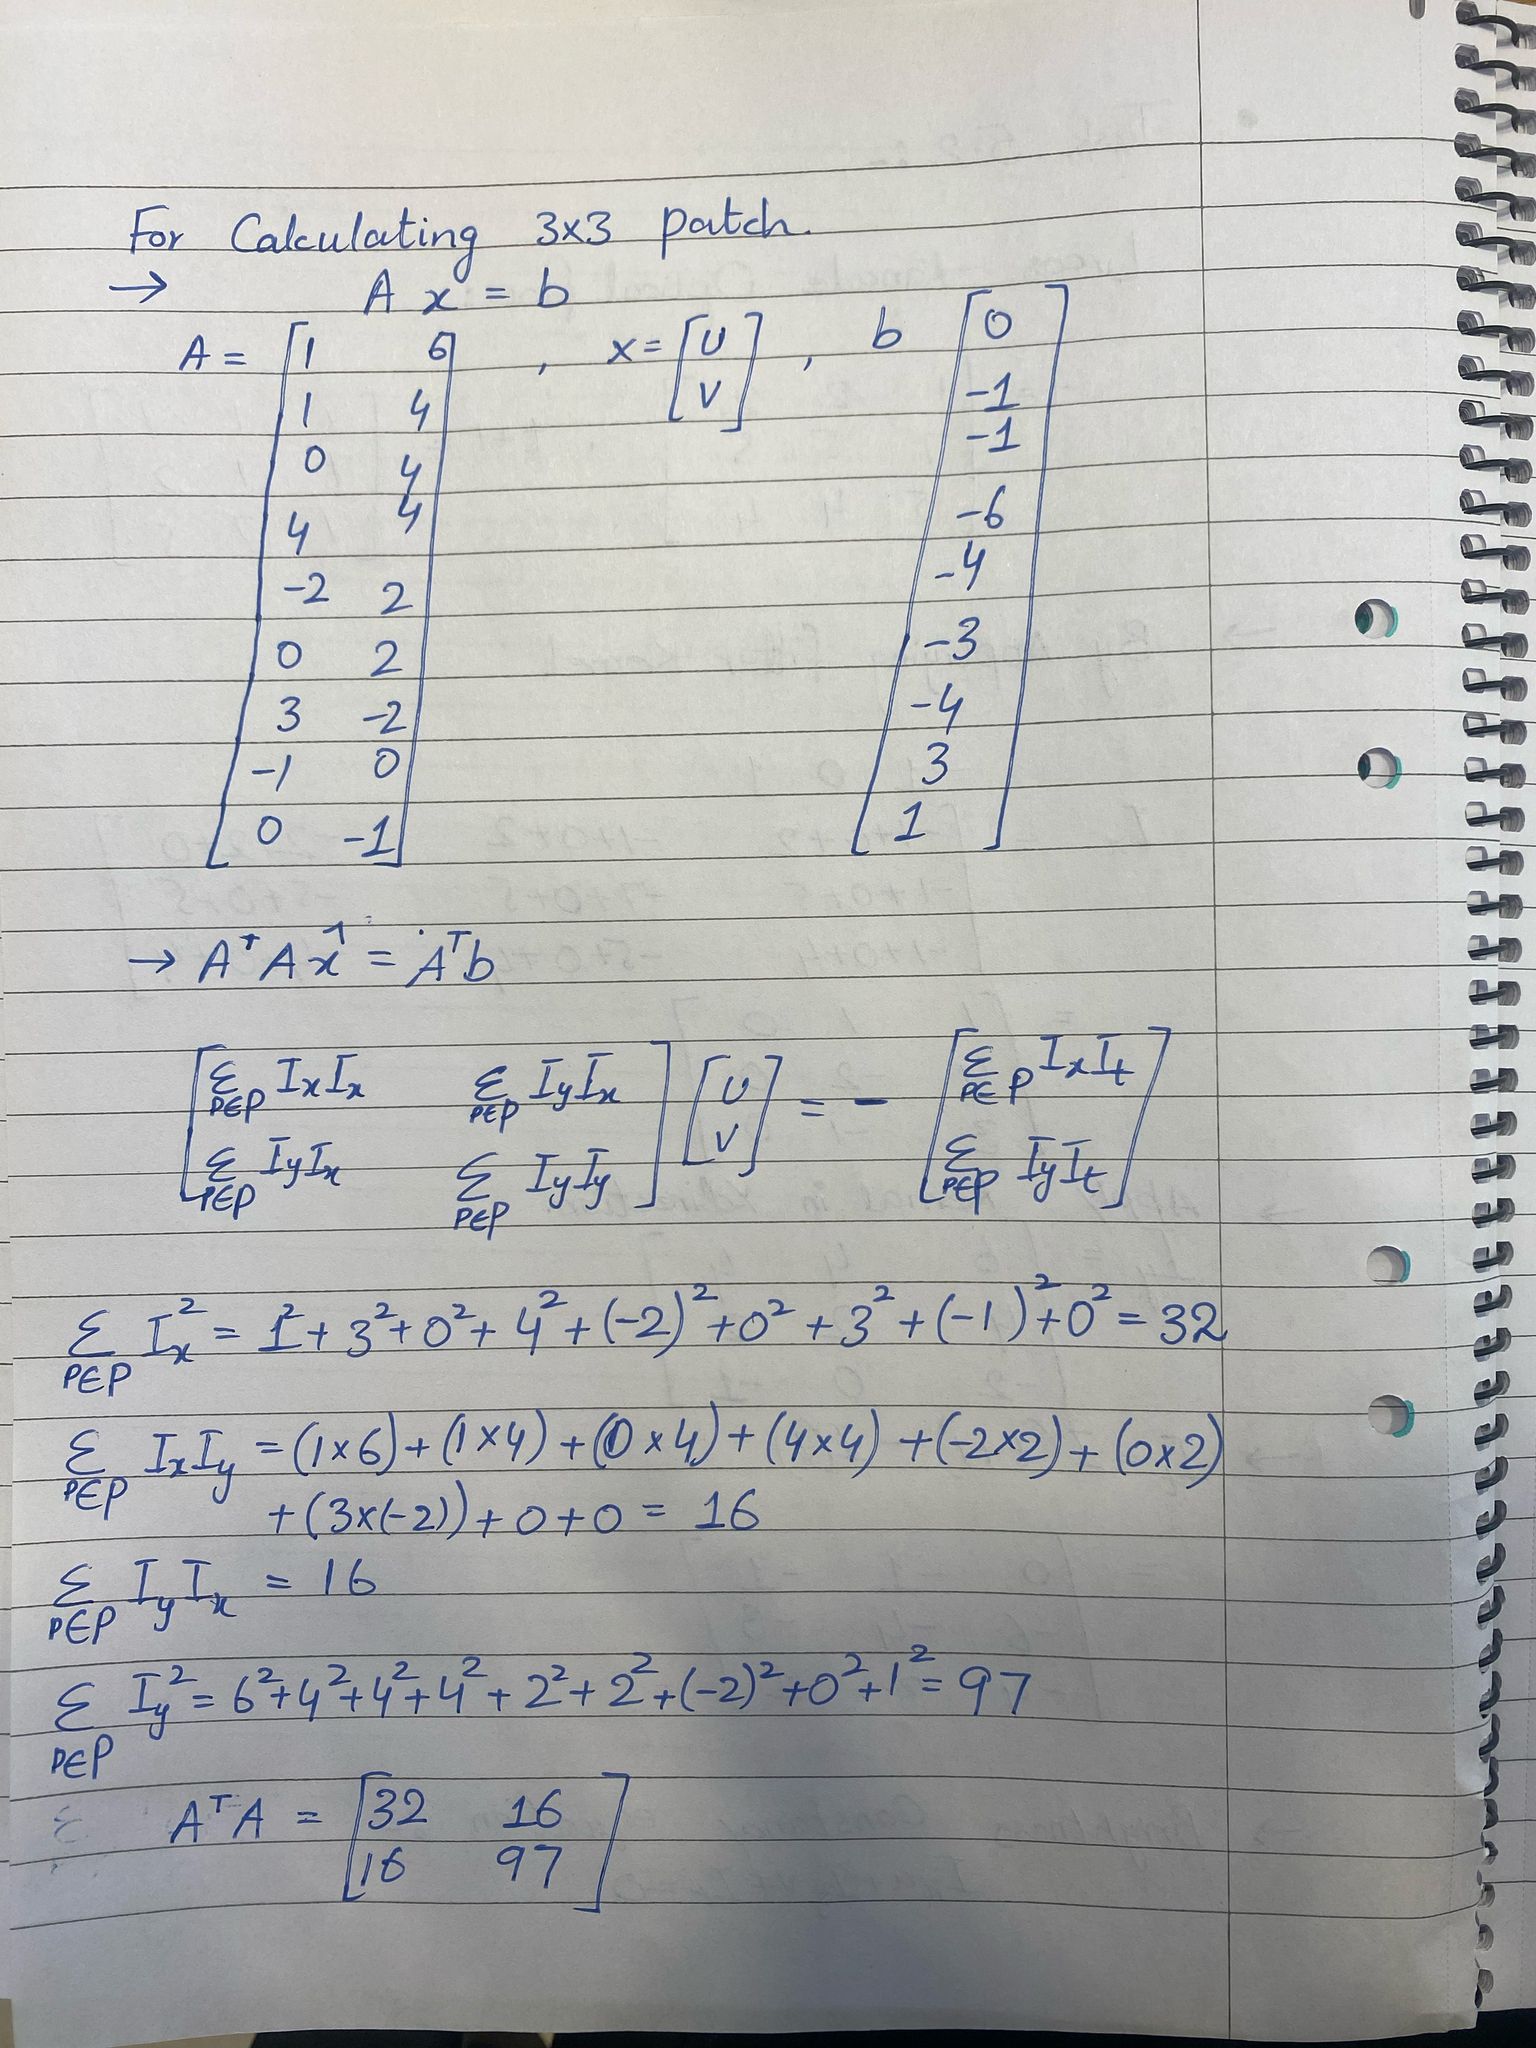 For Calculating 3x3 patch.
→ A x = b
A = [1 6; 1 4; 0 4; 4 4; -2 2; 0 2; 3 -2; -1 0; 0 -1] , x = [U; V] , b [0; -1; -1; -6; -4; -3; -4; 3; 1]
→ AᵀA x̂ = Aᵀb
[Σ_{P∈P} IₓIₓ Σ_{P∈P} I_yIₓ; Σ_{P∈P} I_yIₓ Σ_{P∈P} I_yI_y] [U; V] = - [Σ_{P∈P} IₓI_t; Σ_{P∈P} I_yI_t]
Σ_{P∈P} Iₓ² = 1² + 3² + 0² + 4² + (-2)² + 0² + 3² + (-1)² + 0² = 32
Σ_{P∈P} IₓI_y = (1x6) + (1x4) + (0x4) + (4x4) + (-2x2) + (0x2)
+ (3x(-2)) + 0 + 0 = 16
Σ_{P∈P} I_yIₓ = 16
Σ_{P∈P} I_y² = 6² + 4² + 4² + 4² + 2² + 2² + (-2)² + 0² + 1² = 97
AᵀA = [32 16; 16 97]